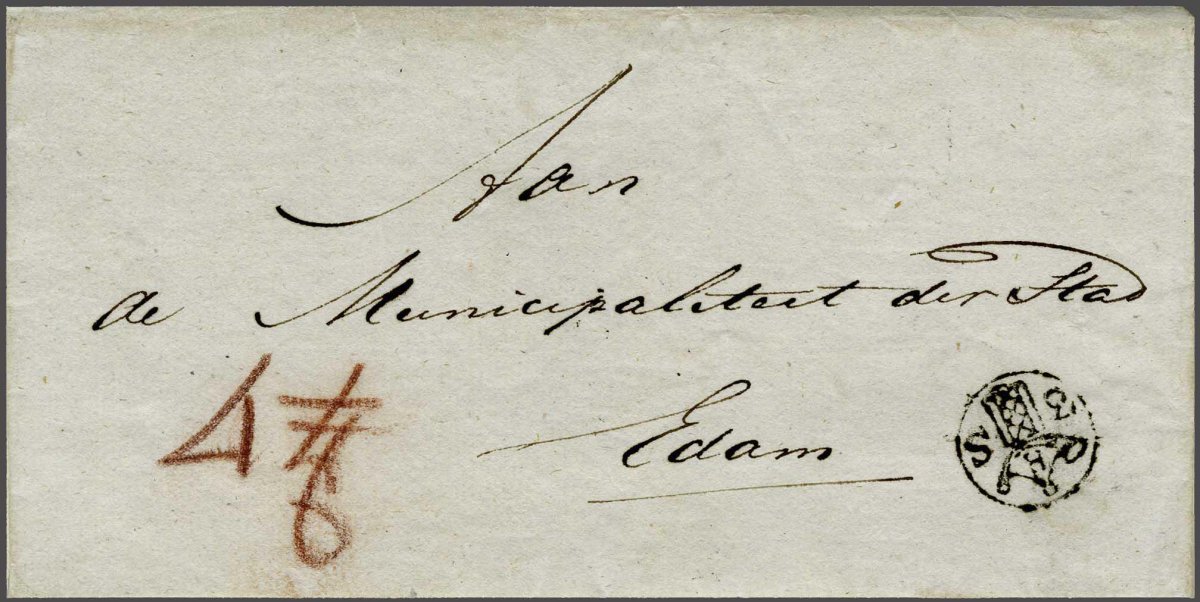 Aan
de Municipaliteit der Stad
Edam
4
S 3 P